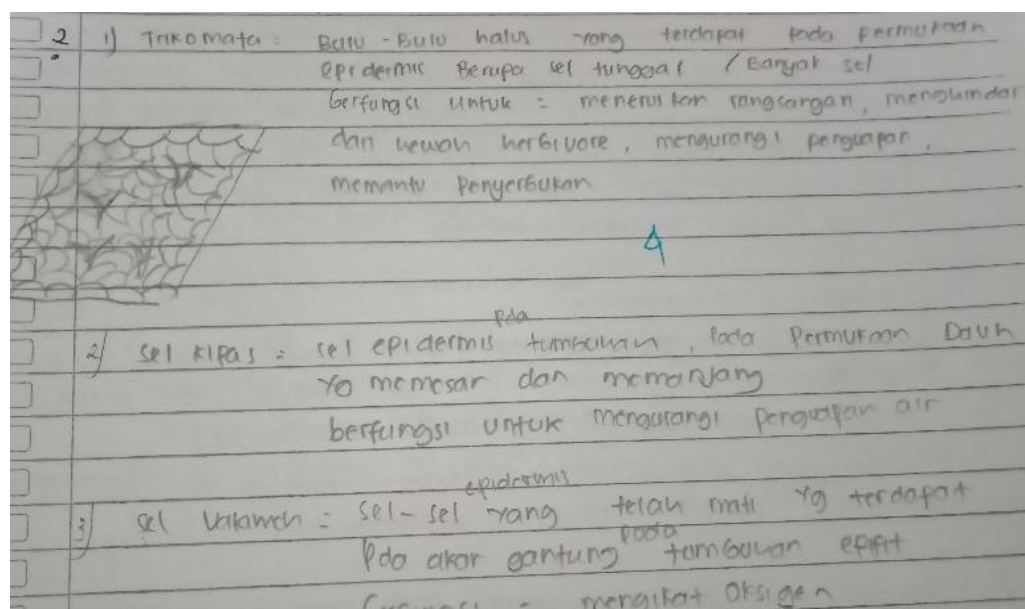 2 1) Trikomata : Bulu - Bulu halus yang terdapat pada permukaan
epidermis Berupa sel tunggal / Banyak sel
berfungsi untuk : meneruskan rangsangan, menghindar
dari hewan herbivore, mengurangi penguapan,
memantu Penyerbukan
4
2) sel kipas : sel epidermis pda tumbuhan, pada Permukaan Daun
Yg memesar dan memanjang
berfungsi untuk mengurangi penguapan air
3) sel Valamen : sel-sel epidermis yang telah mati yg terdapat
Pda akar gantung pada tumbuhan epifit
: mengikat Oksigen